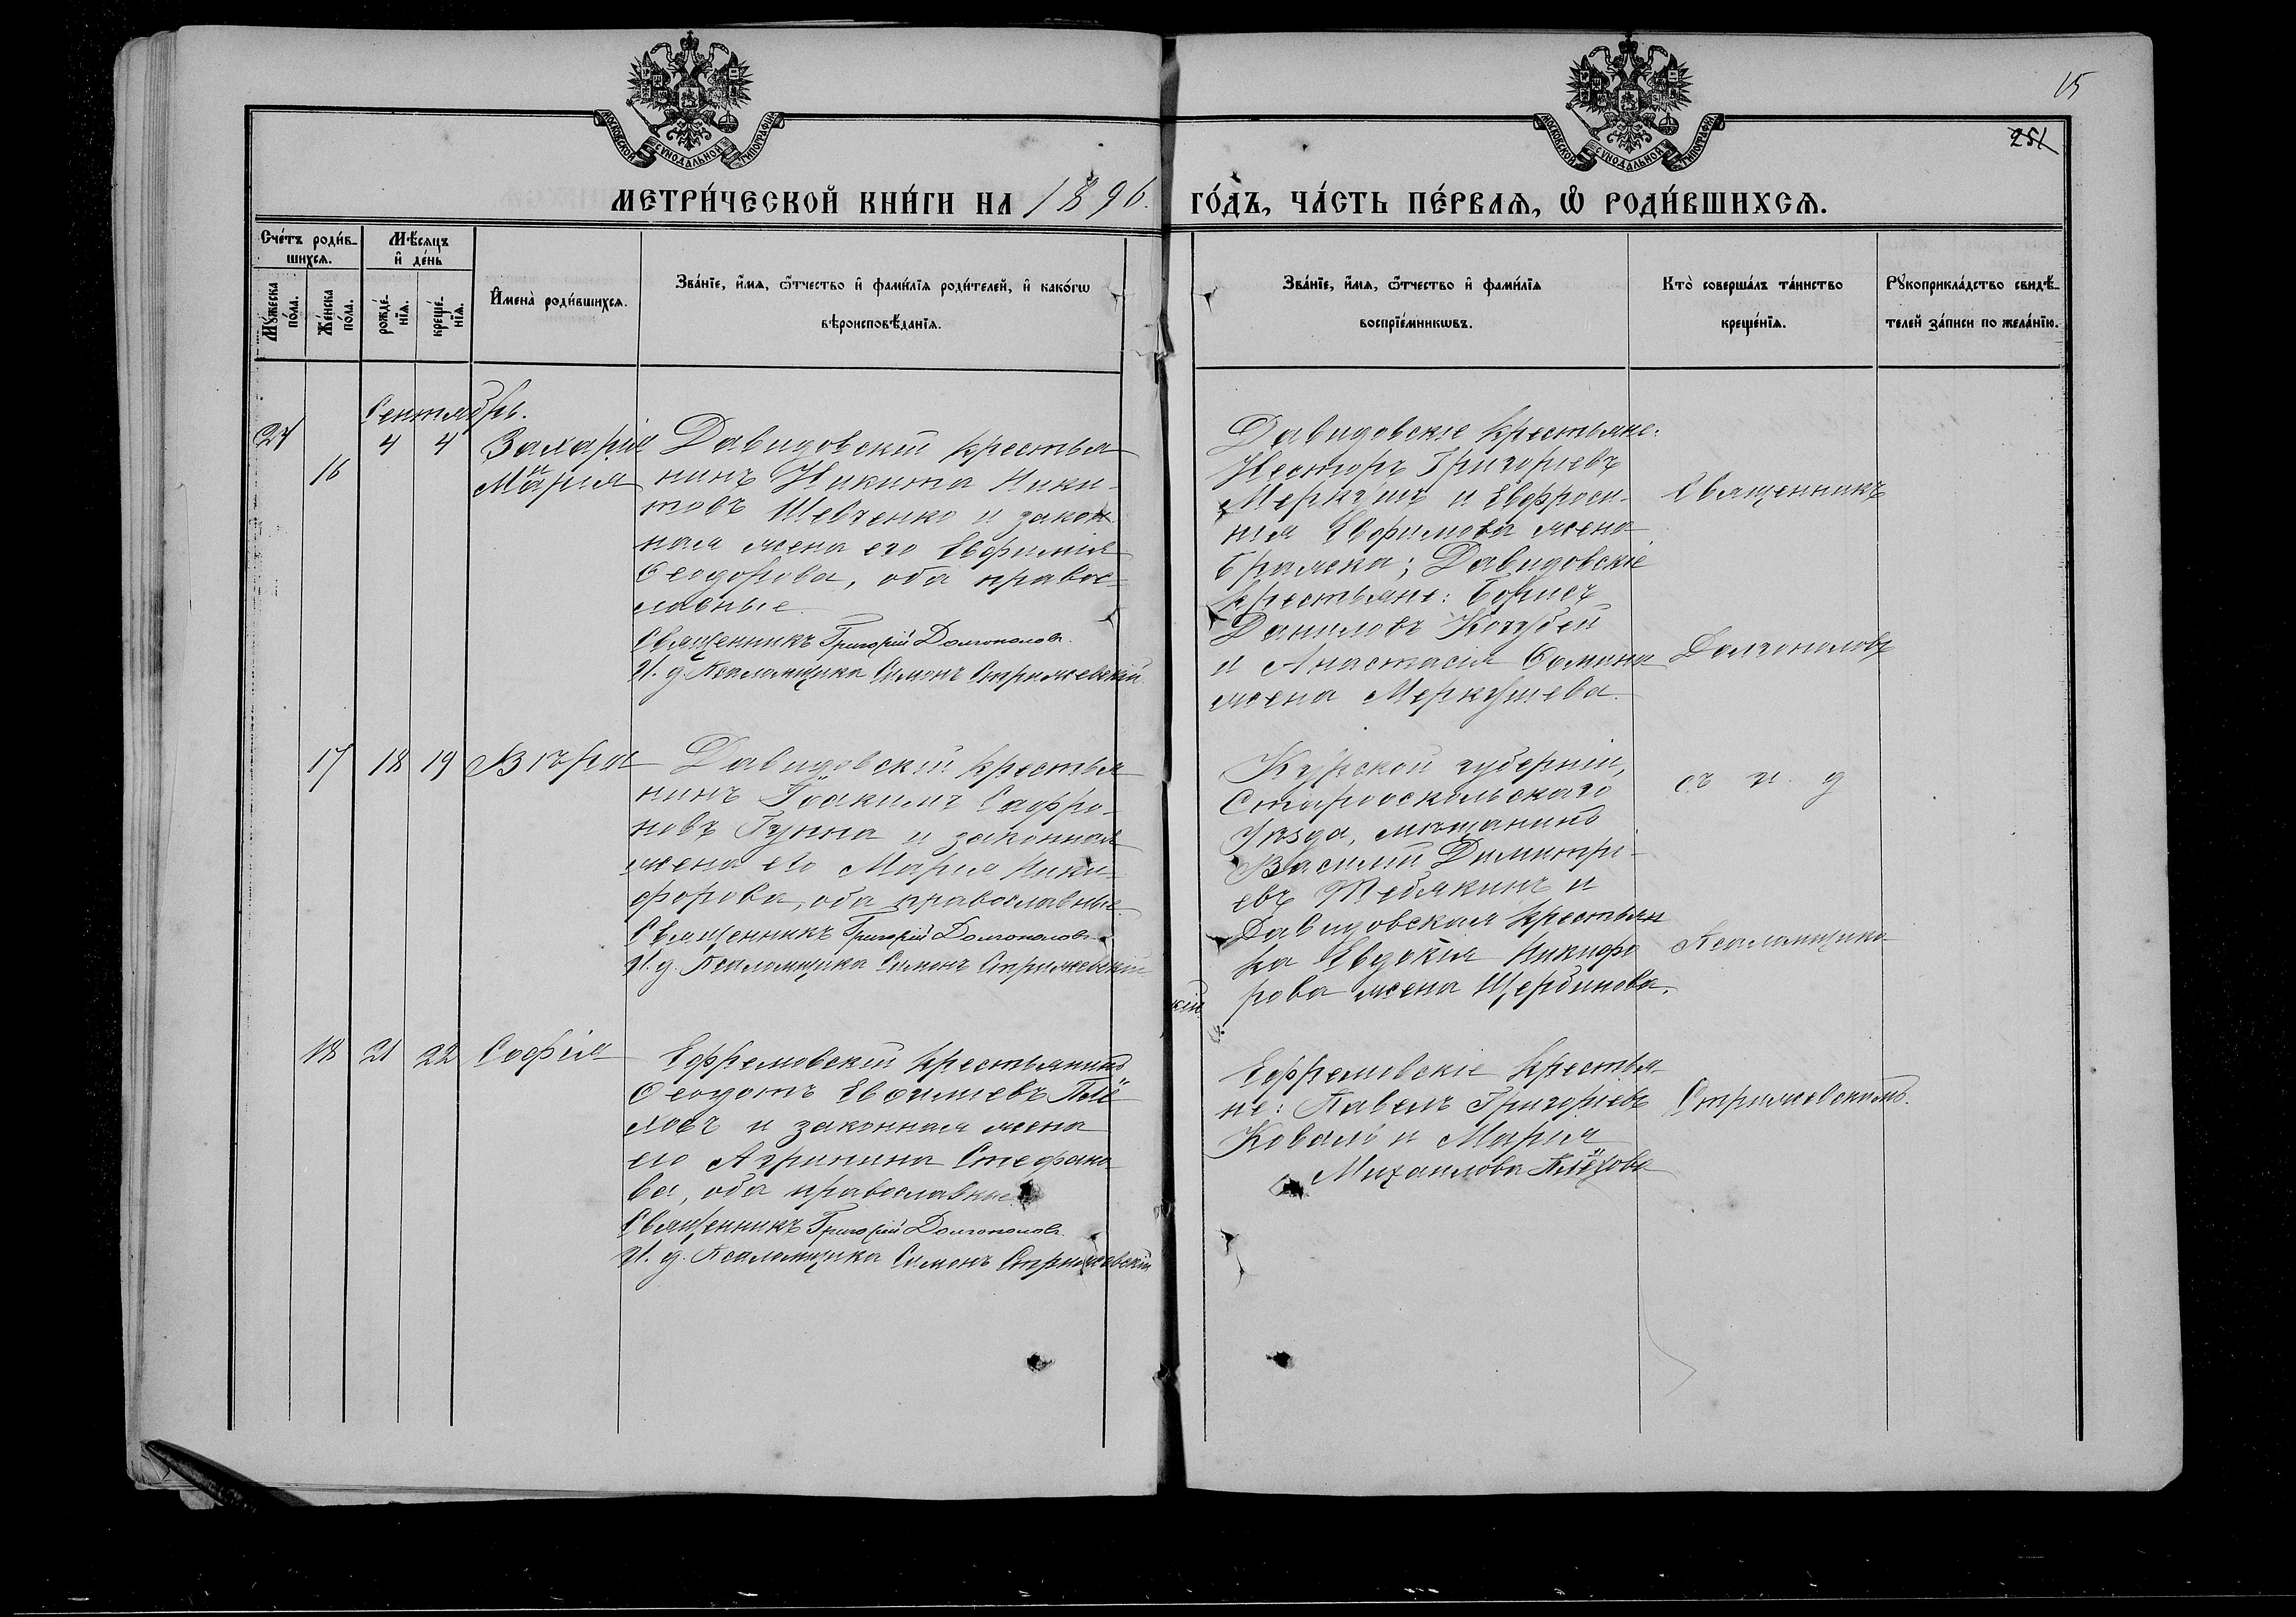 15
251
МОСКОВСКОЙ СѴНОДАЛЬНОЙ ТИПОГРАФІИ
МОСКОВСКОЙ СѴНОДАЛЬНОЙ ТИПОГРАФІИ
МЕТРИ́ЧЕСКОЙ КНИ́ГИ НА 1896. ГО́ДЪ, ЧА́СТЬ ПЕ́РВАЯ, Ѡ҆ РОДИ́ВШИХСЯ.
Сче́тъ роди́в-
шихся.
Мѣ́сяцъ
и҆ де́нь
Мꙋ́жеска
по́ла.
Же́нска
по́ла.
рожде́-
нїя.
креще́-
нїя.
И҆мена̀ роди́вшихся.
Зва́нїе, и҆́мя, ѻ҆́тчество и҆ фами́лїя роди́телей, и҆ како́гѡ
вѣроисповѣ́данїя.
Зва́нїе, и҆́мя, ѻ҆́тчество и҆ фами́лїя
воспрїе́мникѡвъ.
Кто̀ соверша́лъ та́инство
креще́нїя.
Рꙋкоприкла́дство свидѣ́-
телей за́писи по жела́нїю.
Сентябрь.
24 4 4 Захарія
16 и Марія
Давидовскій крестья
нинъ Никита Ники-
товъ Шевченко и закон
ная жена его Евфимія
Ѳеодорова, оба правос-
лавные.
Священникъ Григорій Долгополовъ
И. д. Псаломщика Симонъ Стрижевскій
Давидовскіе крестьяне:
Несторъ Григорьевъ
и Евфроси-
нія Евфимова жена
Давидовскіе
крестьяне: Борисъ
Даниловъ Кочубей
и Анастасія Ѳомина
жена Меркушева.
Священникъ
Долгополовъ
17 18 19 Вѣра
Давидовскій крестья
нинъ Іоакимъ Сафро-
новъ Гунна и законная
жена его Марія Ники-
форова, оба православные.
Священникъ Григорій Долгополовъ
И. д. Псаломщика Симонъ Стрижевскій
Курской губерніи,
Старооскольскаго
Уѣзда, мѣщанинъ
Василій Димитрі-
евъ Жебякинъ и
Давидовская крестьян
ка Евдокія Никифо
рова жена Щербинова.
съ и. д
Псаломщика
кій
18 21 22 Софія
Ефремовскій крестьянинъ
Ѳеодотъ Евѳиміевъ Плё
ховъ и законная жена
его Агрипина Стефано
ва, оба православные
Священникъ Григорій Долгополовъ
И. д. Псаломщика Симонъ Стрижевскій
Ефремовскіе крестья-
не: Павелъ Григорьевъ
Коваль и Марія
Михаилова Плёхова
Стрижевскимъ.